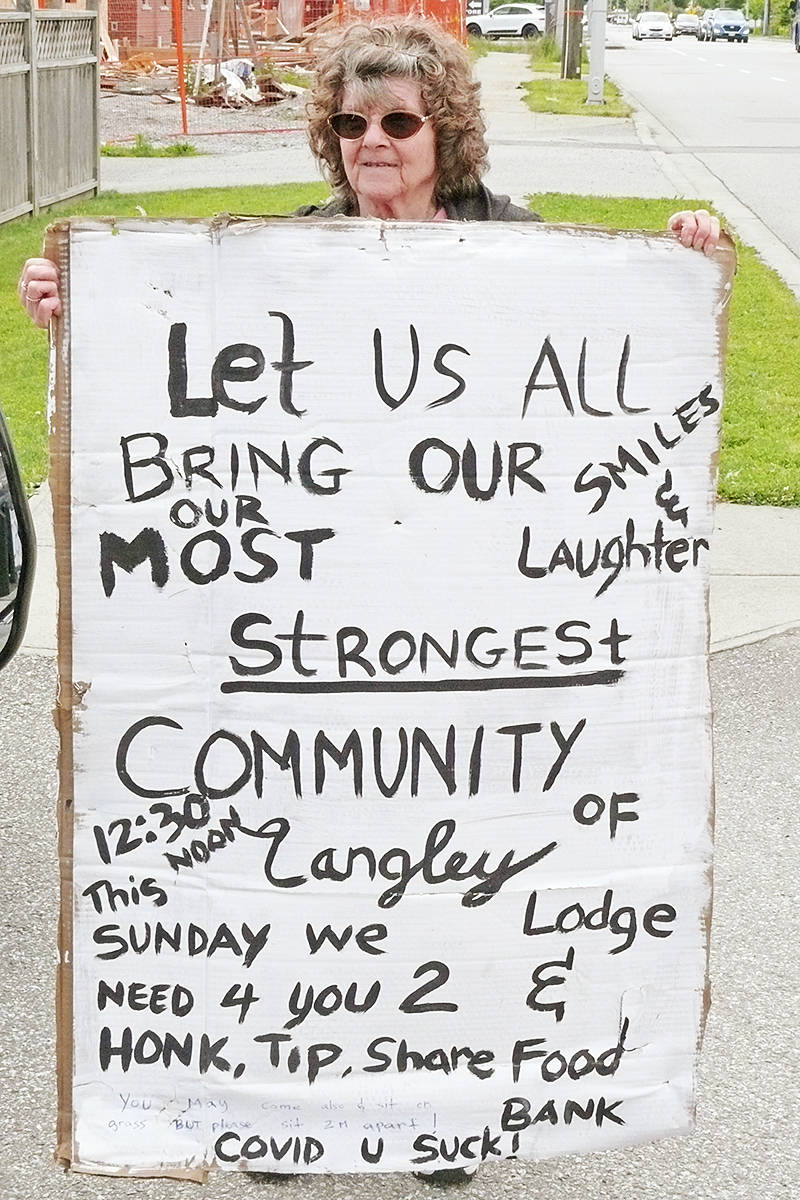 Let Us ALL
BRING OUR SMILES
OUR &
MOST Laughter
StRONGESt
COMMUNITY
12:30 NOON OF
Langley
This
SUNDAY we Lodge
NEED 4 you 2 &
HONK, Tip, Share Food
You May come also & sit on BANK
grass BUT please sit 2M apart!
COVID u Suck!